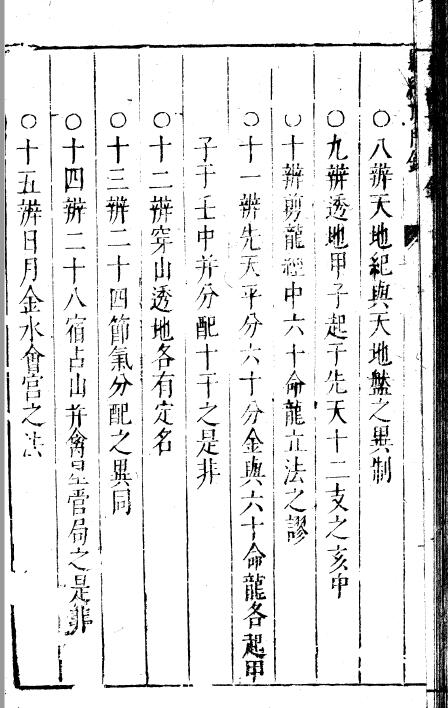 ○八辨天地紀與天地盤之異制
○九辨透地甲子起于先天十二支之亥中
○十辨剪龍經中六十命龍立法之謬
○十一辨先天平分六十分金與六十命龍各起甲
子于壬中并分配十干之是非
○十二辨穿山透地各有定名
○十三辨二十四節氣分配之異同
○十四辨二十八宿占山并禽星管局之是非
○十五辨日月金水會宮之法